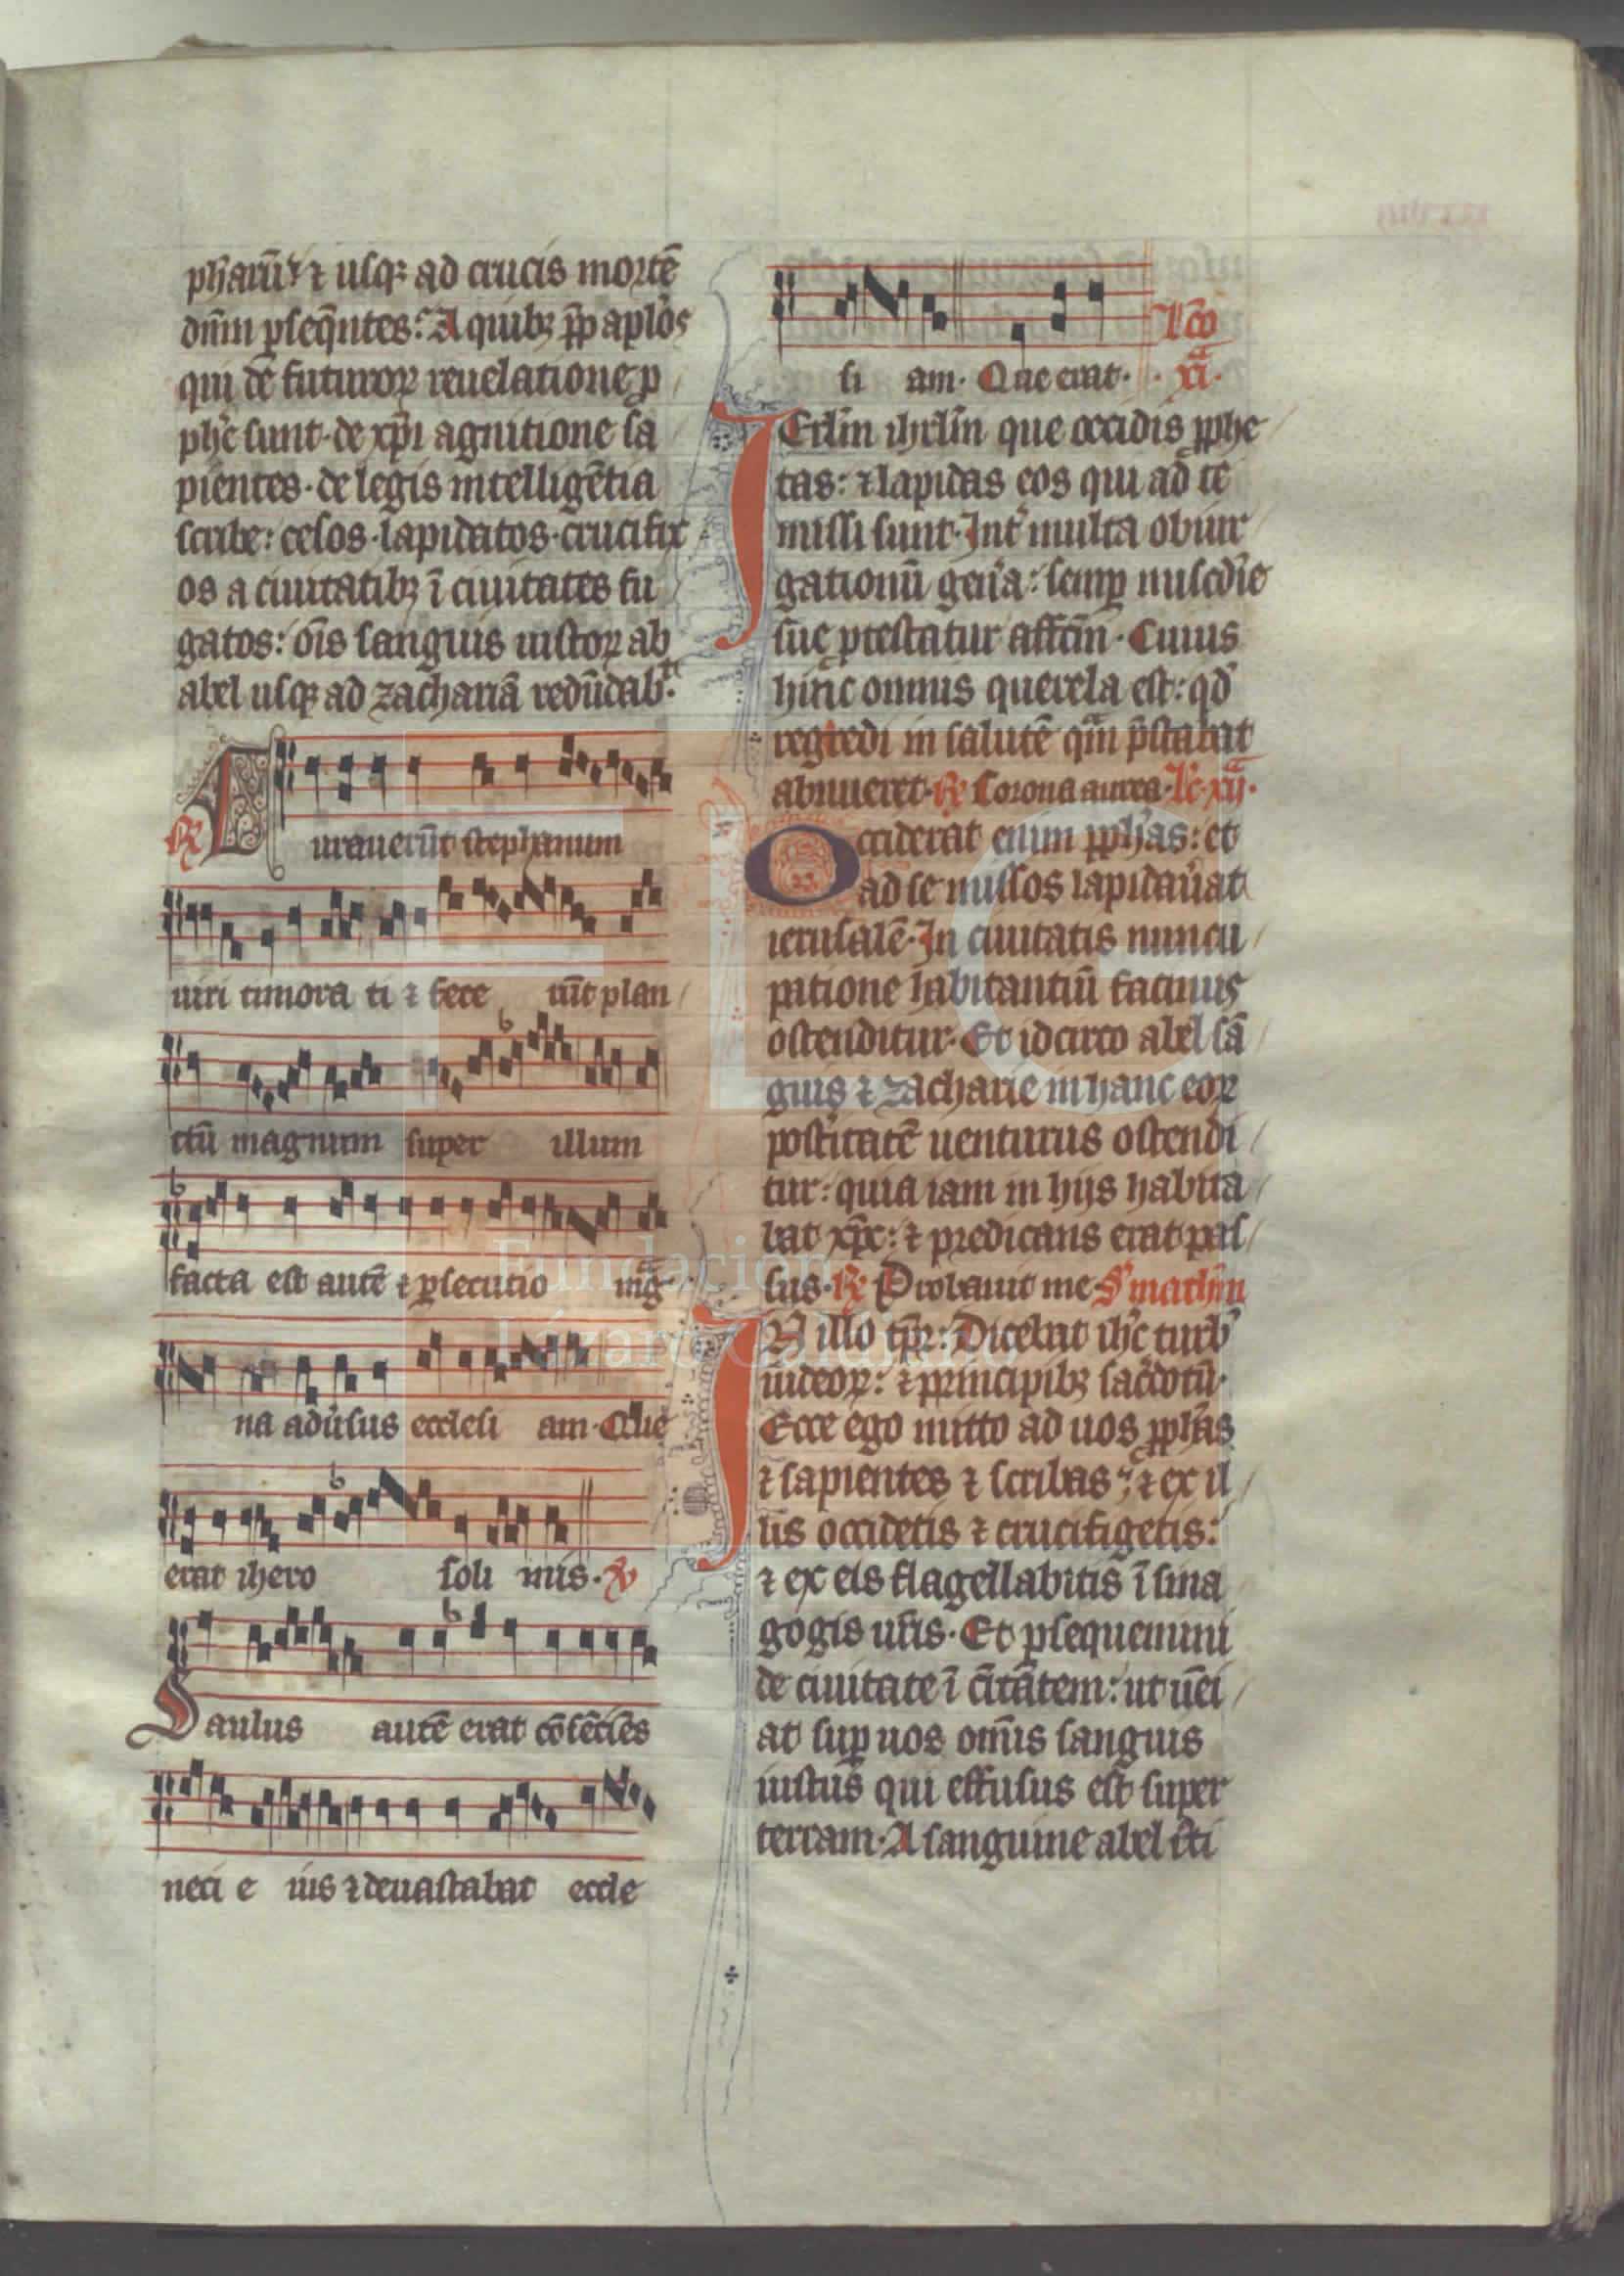 pharū⁊ ⁊ usq; ad crucis mortē
dn̄m ꝑseq̄ntes. A quib; ꝓp aplos
qui de futuroꝝ reuelatione ꝓ
phe sunt. de xp̄i agnitione sa
pientes. de legis intelligētia
scribe: cesos. lapidatos. crucifix
os a ciuitatib; ī ciuitates fu
gatos: oīs sanguis iustoꝝ ab
abel usq; ad zachariā redūdab̾t.
R̷ Curauerūt stephanum
uiri timora ti ⁊ fece rūt plan
ctū magnum super illum
facta est autē ⁊ ꝑsecutio mag
na adūsus ecclesi am. Que
erat ihero soli mis. V̷
Saulus autē erat cōsētiēs
neci e ius ⁊ deuastabat eccle
si am. Que erat. Lc̄o
xi.
IErlm̄ ihrlm̄ que occidis ꝓphe
tas: ⁊ lapidas eos qui ad te
missi sunt. Int̾ multa obiur
gationū gen̾a: semꝑ mis̾cdie
sue ꝓtestatur affcm̄. Cuius
hinc omnis querela est: qd̾
regredi in salutē quā p̄stabat
abnueret. R̷ Corona aurea. Lc̄ xij.
Occiderat enim ꝓphas: et
ad se missos lapidau̾at
ierusalē. In ciuitatis nuncu
patione habitantiū facinus
ostenditur. Et idcirco abel sā
guis ⁊ zacharie in hanc eoꝝ
post̾itatē uenturus ostendi
tur: quia iam in hijs habita
bat xp̄c: ⁊ predicans erat pas
sus. R̷ Probauit me S' mathm̄
IN illo tp̄r: Dicebat ihc̄ turb̾
iudeoꝝ: ⁊ principib; sac̾dotū.
Ecce ego mitto ad uos ꝓphas
⁊ sapientes ⁊ scribas; ⁊ ex il
lis occidetis ⁊ crucifigetis:
⁊ ex eis flagellabitis ī sina
gogis ur̄is. Et ꝑsequemini
de ciuitate ī citātem: ut uēi
at suꝑ uos omīs sanguis
iustus qui effusus est super
terram. A sanguine abel iusti
Fundación
Lázaro Galdiano
FLG